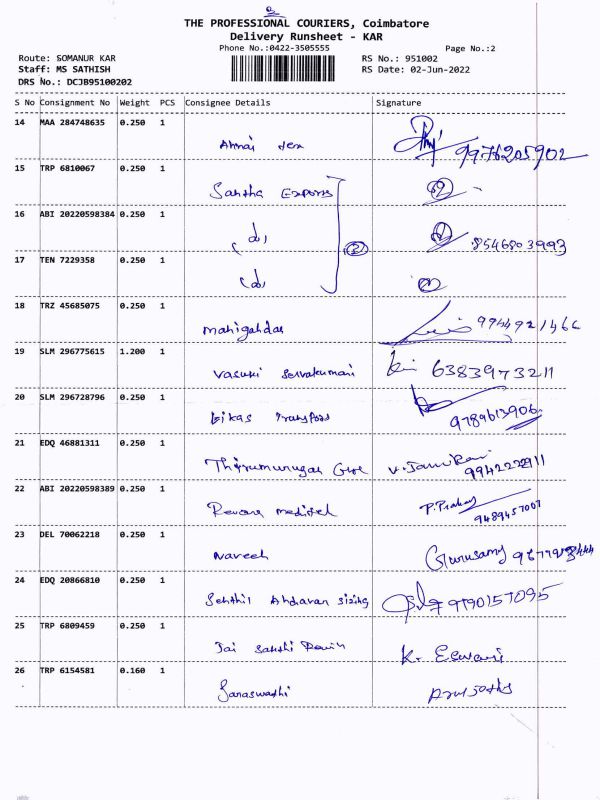 THE PROFESSIONAL COURIERS, Coimbatore
Delivery Runsheet - KAR
Phone No.:0422-3505555
Page No.:2
Route: SOMANUR KAR
RS No.: 951002
Staff: MS SATHISH
RS Date: 02-Jun-2022
DRS No.: DCJB95100202
S No Consignment No Weight PCS Consignee Details Signature
14 MAA 284748635 0.250 1
9976205902
15 TRP 6810067 0.250 1
Santha Exports
16 ABI 20220598384 0.250 1
8546803993
17 TEN 7229358 0.250 1
18 TRZ 45685075 0.250 1
mahigandas
19 SLM 296775615 1.200 1
Vasuki Selvakumari 6383973211
20 SLM 296728796 0.250 1
Vikas Transport 9789613906
21 EDQ 46881311 0.250 1
Thirumurugan V. Janikari
9942222911
22 ABI 20220598389 0.250 1
Revana medical P. Prakas
9489457007
23 DEL 70062218 0.250 1
Naveen Gurusamy
24 EDQ 20866810 0.250 1
Senthil Andavan Sizing 9790157095
25 TRP 6809459 0.250 1
Jai Sakthi K. Eswari
26 TRP 6154581 0.160 1
Saraswathi